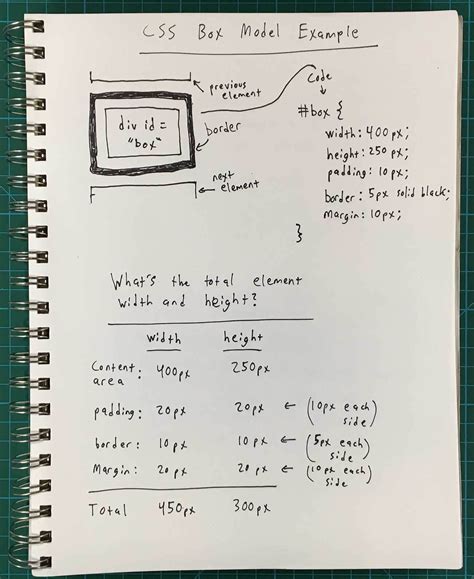 CSS Box Model Example
previous
element
Code
div id =
"box"
border
next
element
#box {
width: 400px;
height: 250px;
padding: 10px;
border: 5px solid black;
Margin: 10px;
}
What's the total element
width and height?
width height
Content
area: 400px 250px
padding: 20px 20px ← (10px each
side)
border: 10px 10px ← (5px each
side)
Margin: 20px 20px ← (10px each
side)
Total 450px 300px